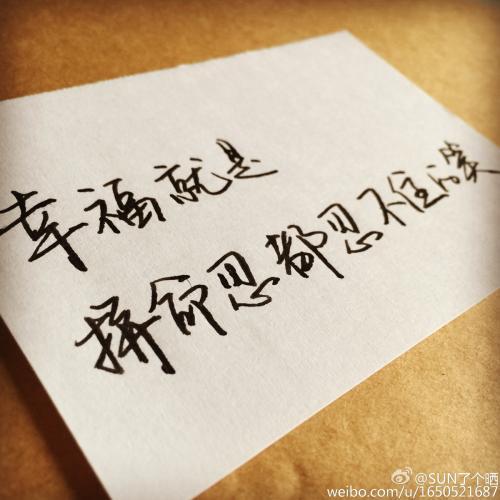 幸福就是
拼命忍都忍不住的笑
@SUN了个晒
weibo.com/u/1650521687